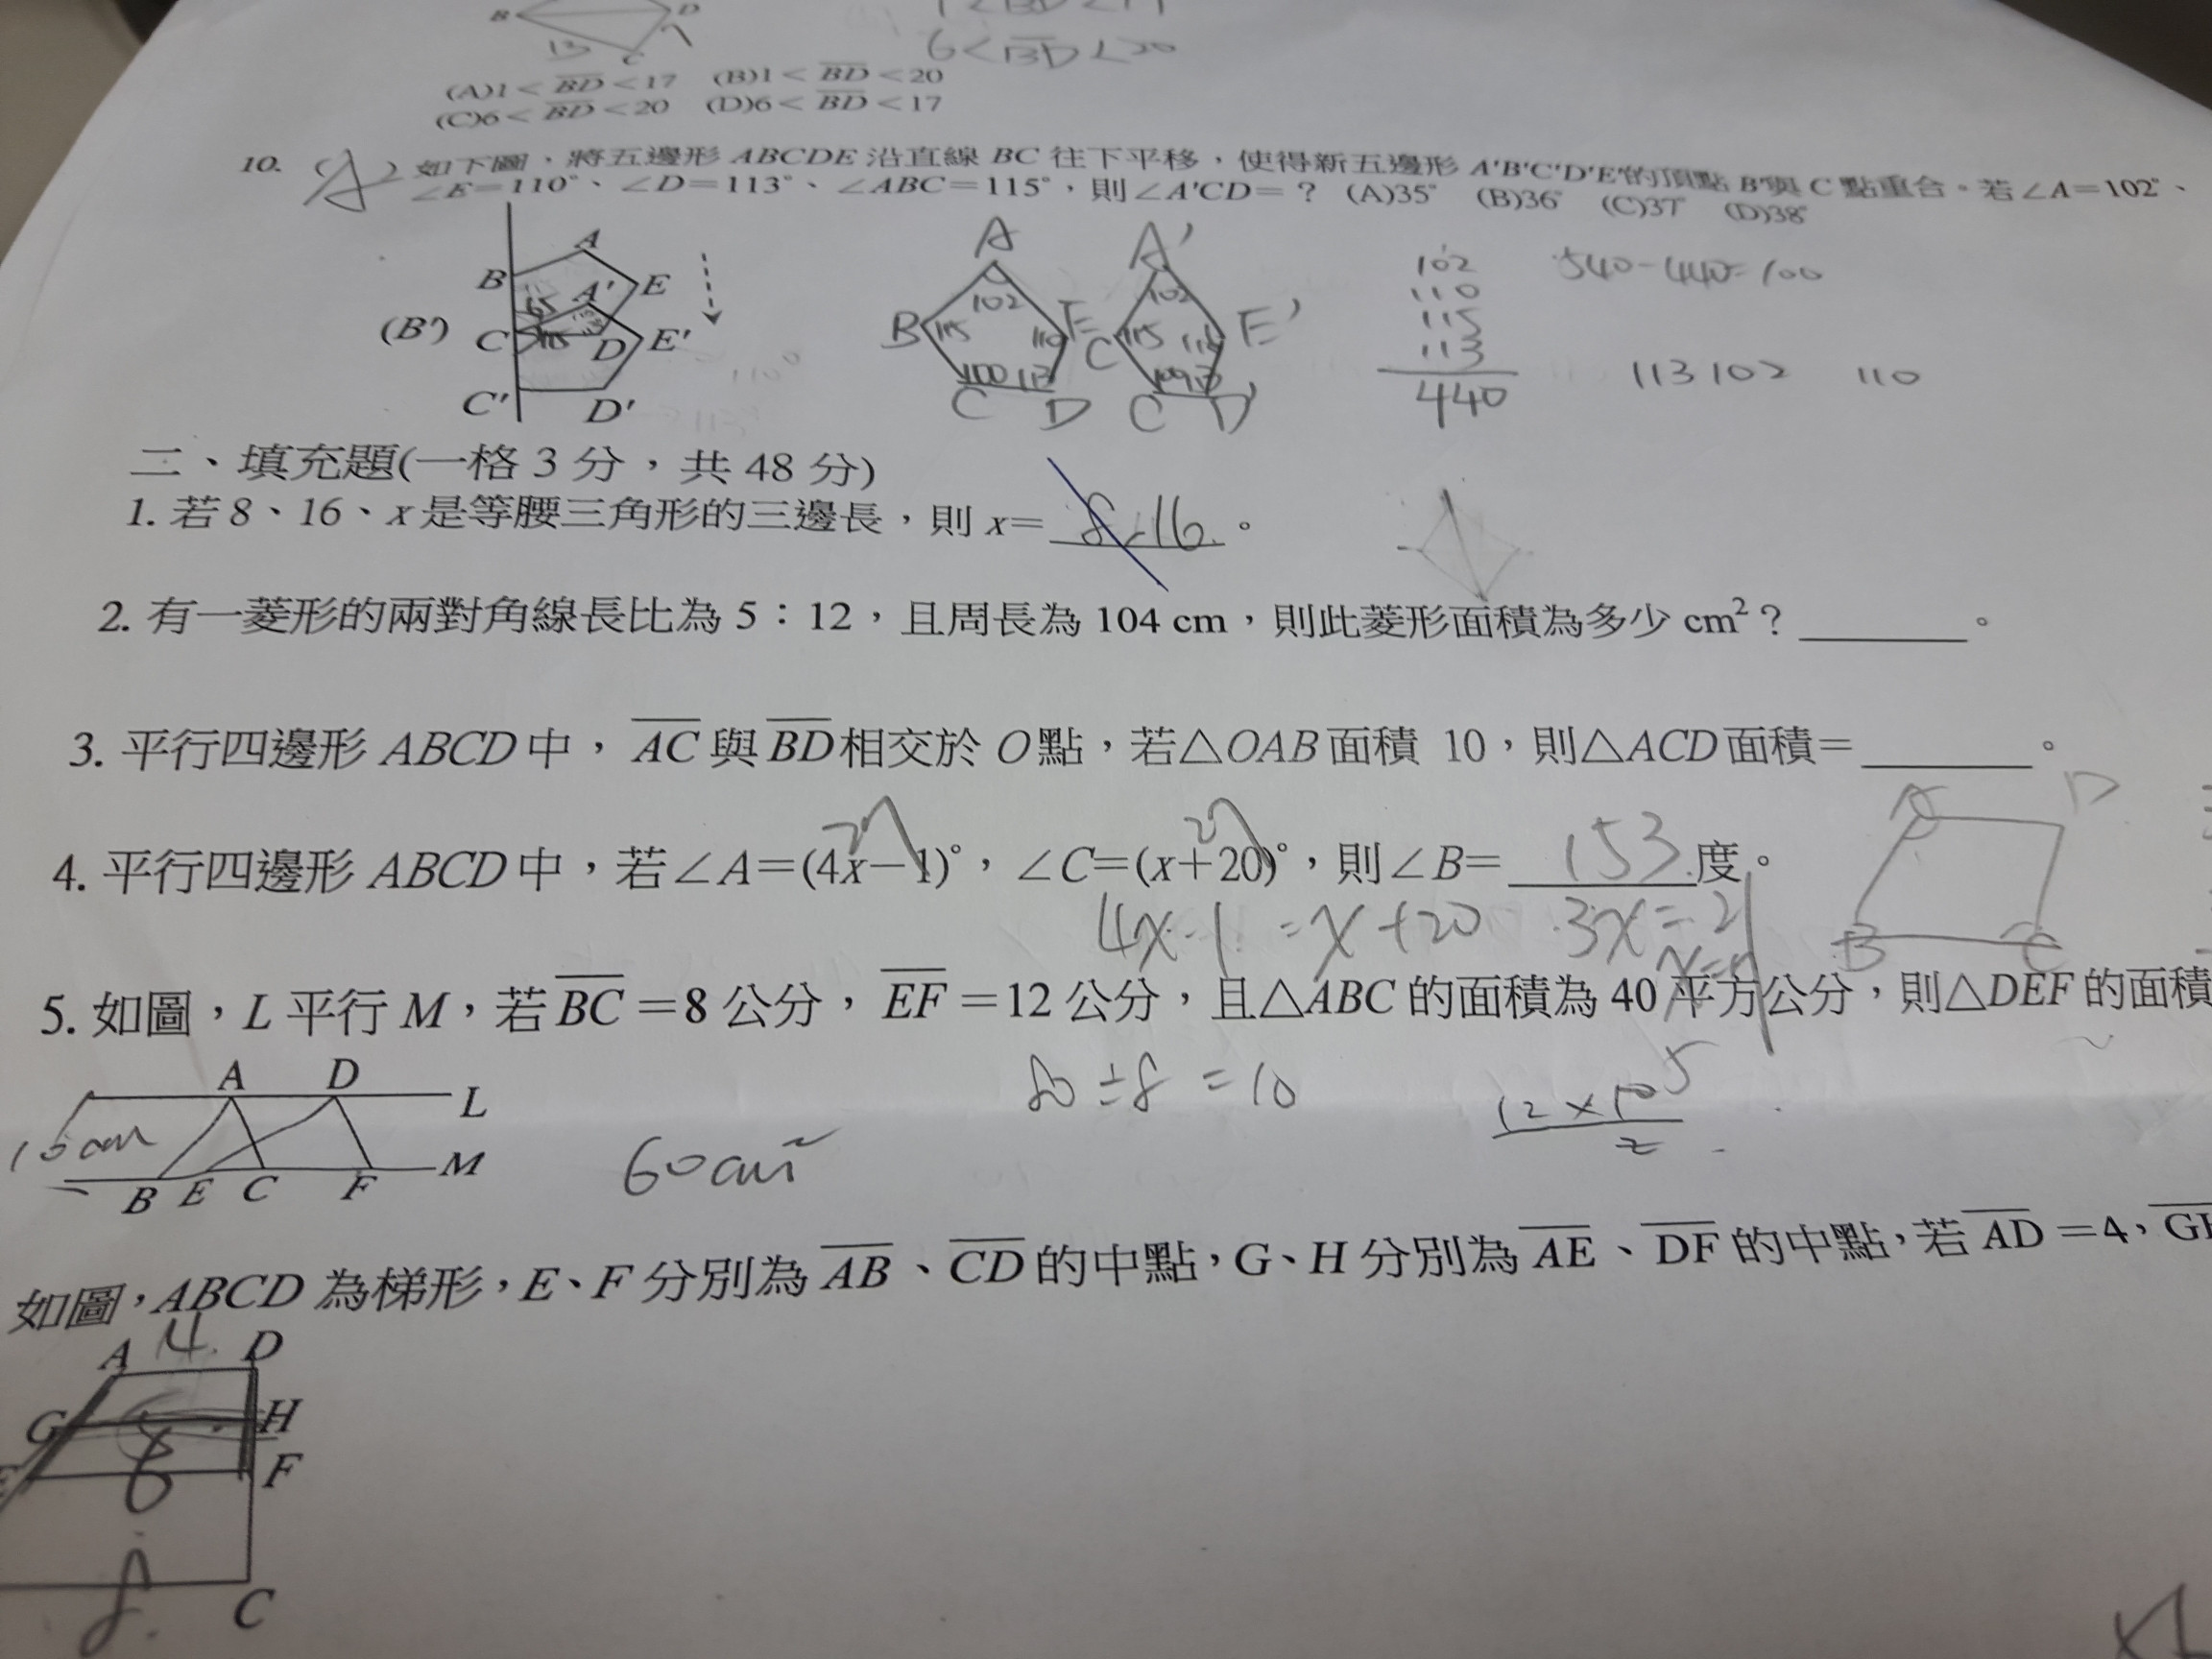 B D
13 C 7
6<BD<20
(A)1<BD<17 (B)1<BD<20
(C)6<BD<20 (D)6<BD<17
10. (A) 如下圖，將五邊形 ABCDE 沿直線 BC 往下平移，使得新五邊形 A'B'C'D'E'的頂點 B'與 C 點重合。若∠A=102°、
∠E=110°、∠D=113°、∠ABC=115°，則∠A'CD=？ (A)35° (B)36° (C)37° (D)38°
A
B E
A'
65
(B') C 115 D E'
C' D'
A
102
B 115 110 E
100 113
C D
A'
102
C 115 110 E'
C' D'
102
110
115
113
440
540-440=100
113 102 110
二、填充題(一格 3 分，共 48 分)
1. 若 8、16、x 是等腰三角形的三邊長，則 x= 8.16 。
2. 有一菱形的兩對角線長比為 5：12，且周長為 104 cm，則此菱形面積為多少 cm²？ 。
3. 平行四邊形 ABCD 中，AC 與 BD 相交於 O 點，若△OAB 面積 10，則△ACD 面積= 。
A D
B C
27 27
4. 平行四邊形 ABCD 中，若∠A=(4x−1)°，∠C=(x+20)°，則∠B= 153 度。
4x-1=x+20 3x=21
5. 如圖，L 平行 M，若 BC=8 公分，EF=12 公分，且△ABC 的面積為 40 平方公分，則△DEF 的面積
A D L
10cm
B E C F M
80÷8=10
12×10 5
2
60cm²
如圖，ABCD 為梯形，E、F 分別為 AB、CD 的中點，G、H 分別為 AE、DF 的中點，若 AD=4，
A 4 D
G H
E F
8
C